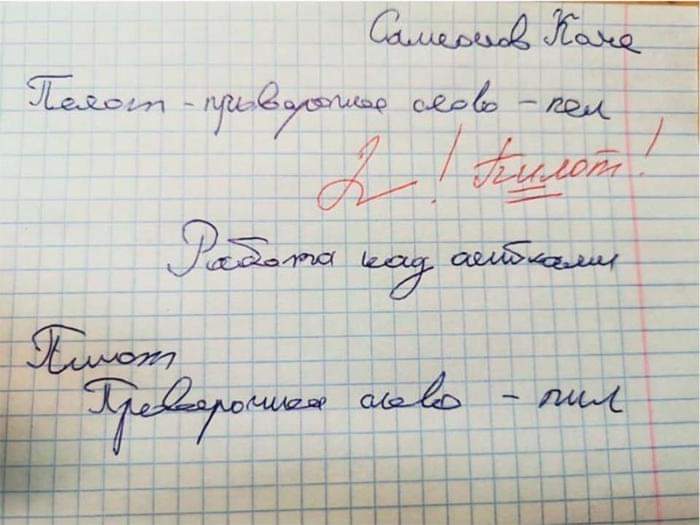 Самсонов Коля
Пелот - приверочное слово - пел
2! Пилот!
Работа над ашибками
Пилот
Преверочное слово - пил